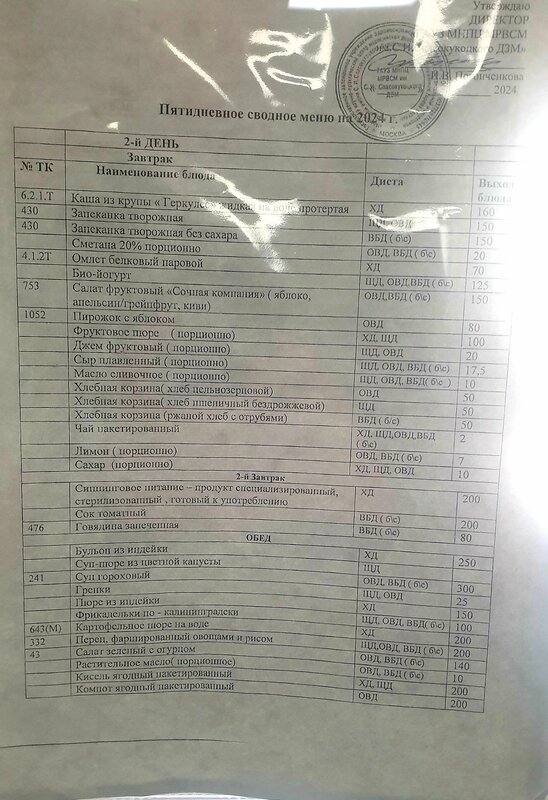 Утверждаю
ДИРЕКТОР
УЗ МНПЦ МРВСМ
ДЗМ»
2024
ГАУЗ МНПЦ
МРВСМ им
С.И. Спасокукоцкого
ДЗМ
МОСКВА
Пятидневное сводное меню на 2024 г.
2-й ДЕНЬ
Завтрак
№ ТК Наименование блюда Диета Выход блюда
6.2.1.Т Каша из крупы « Геркулес» жидкая на протертая ХД 160
430 Запеканка творожная ЩД, ОВД 150
430 Запеканка творожная без сахара ВБД ( б\с) 150
Сметана 20% порционно ОВД, ВБД ( б\с) 20
4.1.2Т Омлет белковый паровой ХД 70
Био-йогурт ЩД, ОВД,ВБД ( б\с) 125
753 Салат фруктовый «Сочная компания» ( яблоко, ОВД,ВБД ( б\с) 150
апельсин/грейпфрут, киви)
1052 Пирожок с яблоком ОВД 80
Фруктовое пюре ( порционно) ХД, ЩД 100
Джем фруктовый ( порционно) ЩД, ОВД 20
Сыр плавленный ( порционно) ЩД, ОВД, ВБД ( б\с) 17,5
Масло сливочное ( порционно) ЩД, ОВД, ВБД( б\с ) 10
Хлебная корзина( хлеб цельнозерновой) ОВД 50
Хлебная корзина( хлеб пшеничный бездрожжевой) ЩД 50
Хлебная корзина (ржаной хлеб с отрубями) ВБД ( б/с) 50
Чай пакетированный ХД, ЩД,ОВД,ВБД 2
( б\с)
Лимон ( порционно) ОВД, ВБД ( б\с) 7
Сахар (порционно) ХД, ЩД, ОВД 10
2-й Завтрак
Сиппинговое питание – продукт специализированный, ХД 200
стерилизованный , готовый к употреблению
Сок томатный ВБД ( б\с) 200
476 Говядина запеченная ВБД ( б\с) 80
ОБЕД
Бульон из индейки ХД 250
Суп-пюре из цветной капусты ЩД
241 Суп гороховый ОВД, ВБД ( б\с) 300
Гренки ЩД, ОВД 25
Пюре из индейки ХД 150
Фрикадельки по - калининградски ЩД, ОВД, ВБД ( б\с) 100
643(М) Картофельное пюре на воде ХД 200
332 Перец, фаршированный овощами и рисом ЩД,ОВД, ВБД ( б\с) 200
43 Салат зеленый с огурцом ОВД, ВБД ( б\с) 140
Растительное масло( порционное) ОВД, ВБД ( б\с) 10
Кисель ягодный пакетированный ХД, ЩД 200
Компот ягодный пакетированный ОВД 200